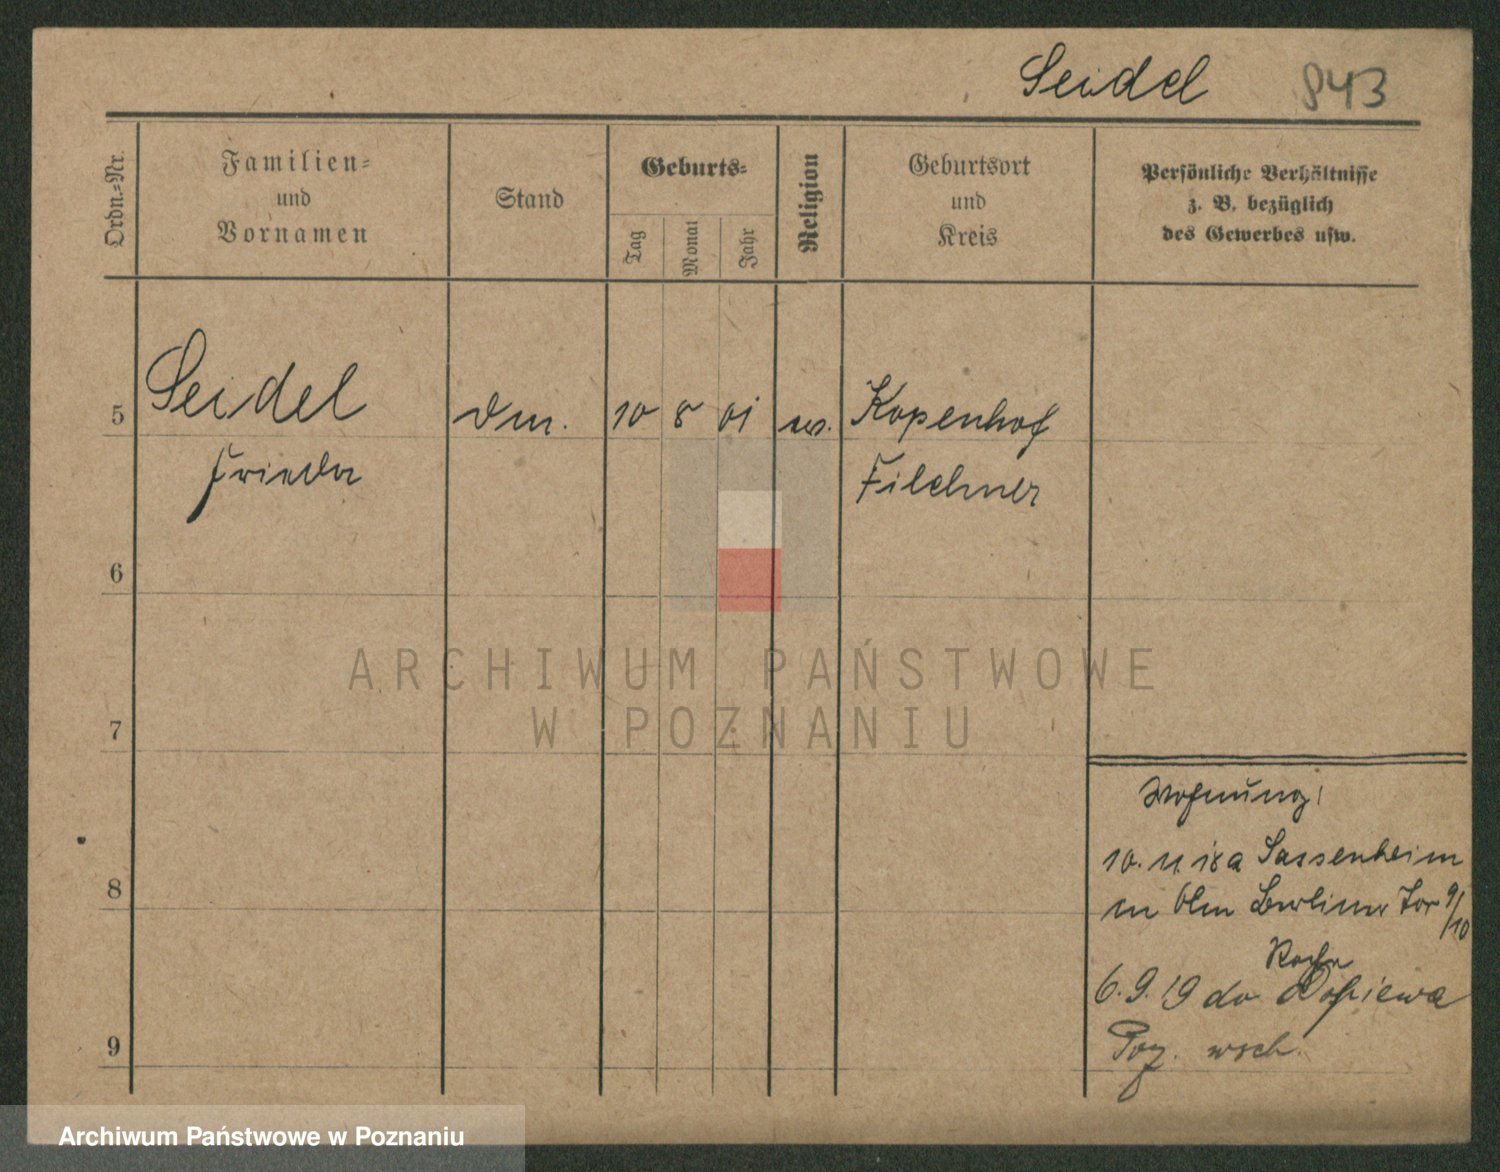 Seidel 843
Ordn.=Nr.
Familien=
und
Vornamen
Stand
Geburts=
Tag
Monat
Jahr
Religion
Geburtsort
und
Kreis
Persönliche Verhältnisse
z. B. bezüglich
des Gewerbes usw.
5 Seidel 10 8 01 Kopenhof
Frieda Filehner
6
7
ARCHIWUM PAŃSTWOWE
W POZNANIU
Wohnung:
10. 11. 18 a Sassenheim
8
Berliner Tor 9/10
6. 9. 19 do Dopiewa
9
Poz. wsch.
Archiwum Państwowe w Poznaniu